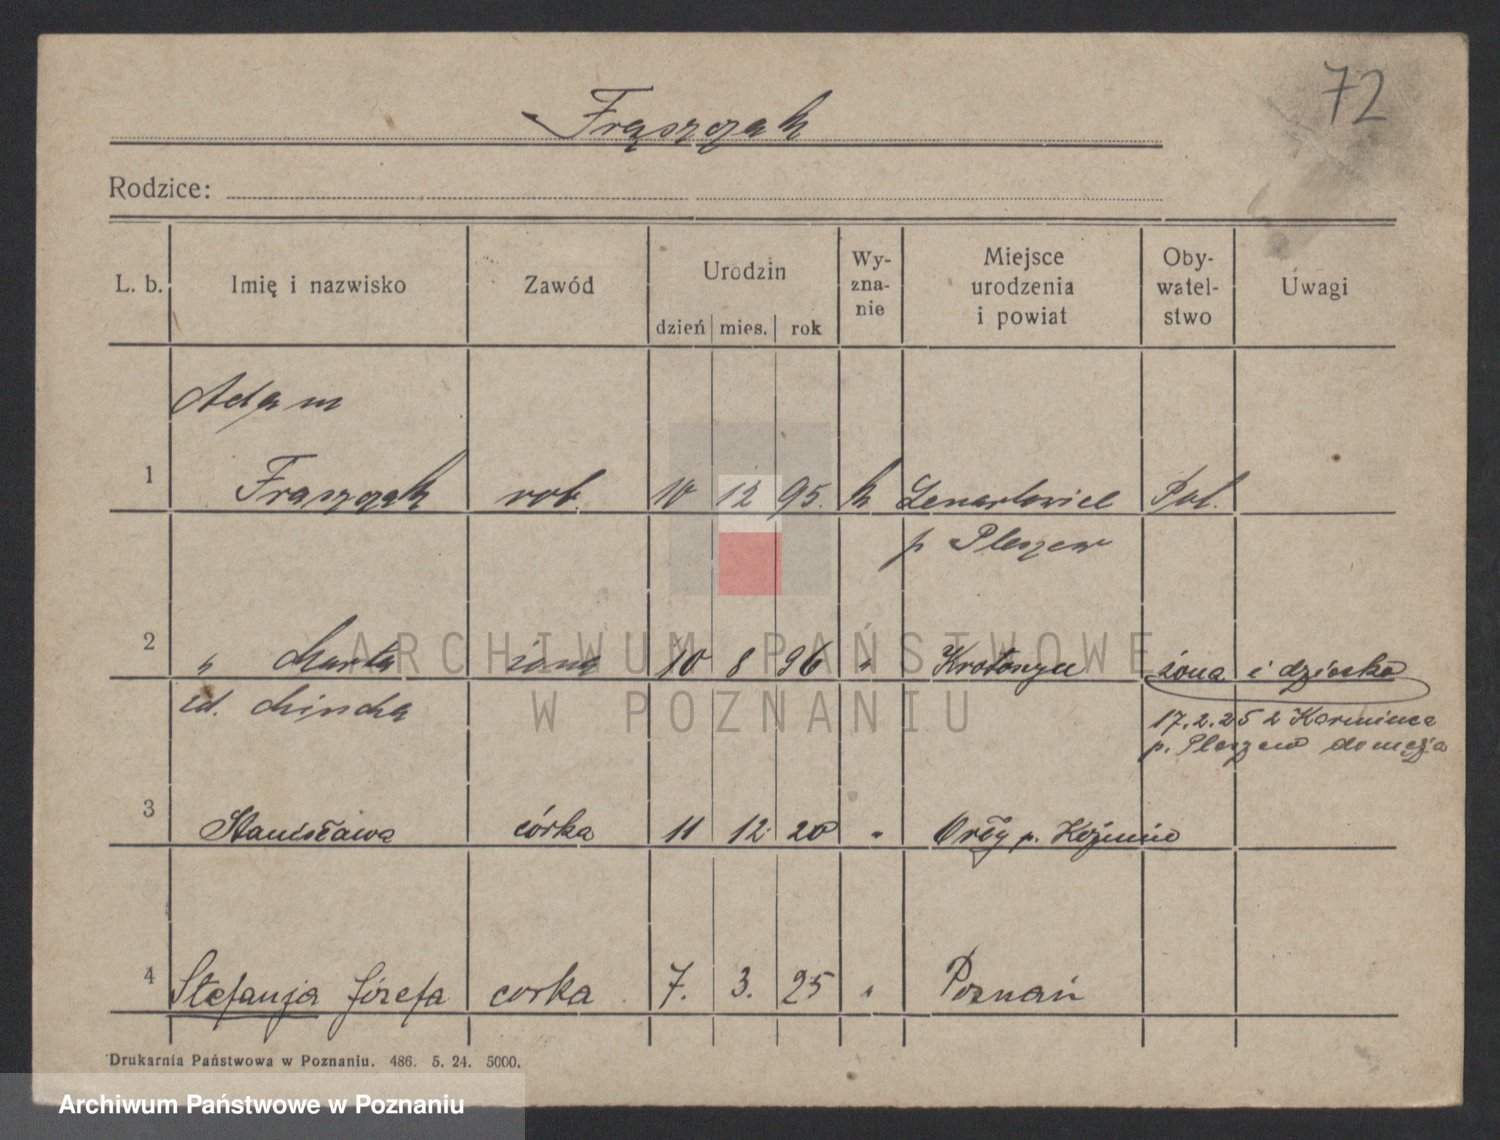 72
Frąszczak
Rodzice:
L. b. Imię i nazwisko Zawód Urodzin Wy-zna-nie Miejsce urodzenia i powiat Oby-watel-stwo Uwagi
dzień mies. rok
Adam
1 Frąszczak rob. 10 12 95. k Lenartowice Pol.
p Pleszew
2 " Marta żona 10 8 96 " Krotoszyn żona i dziecko
17.2.25 z
p. Pleszew
3 Stanisława córka 11 12 20 " Orły p. Koźmin
4 Stefanja Józefa corka 7. 3. 25 " Poznań
Drukarnia Państwowa w Poznaniu. 486. 5. 24. 5000.
ARCHIWUM PAŃSTWOWE
W POZNANIU
Archiwum Państwowe w Poznaniu